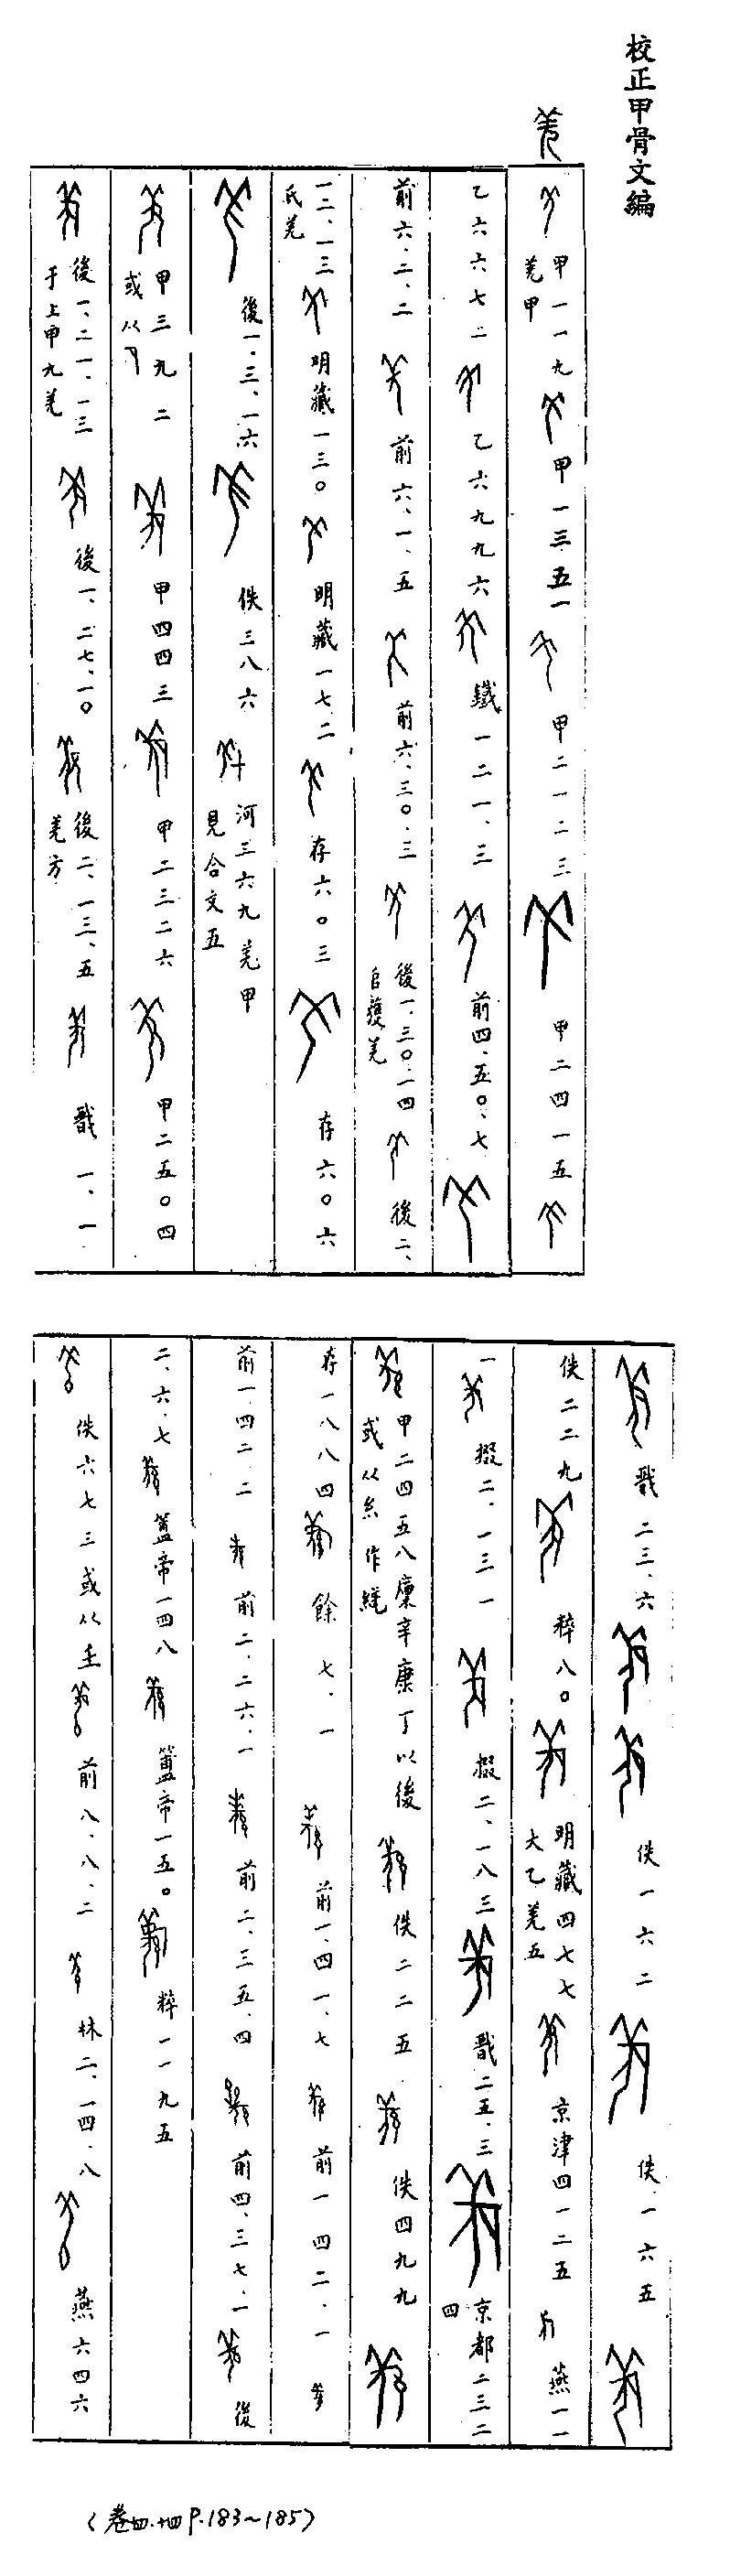 校正甲骨文編
甲一一九
羌甲
甲一三五一
甲二一二三
甲二四一五
乙六六七二
乙六九九六
鐵一二一、三
前四、五〇、七
前六、二、二
前六、一、五
前六、三〇、三
後一、三〇、一四
𠂤獲羌
後二、
一二、一三
氏羌
明藏一三〇
明藏一七二
存六〇三
存六〇六
後一、三、一六
佚三八六
河三六九羌甲
見合文五
甲三九二
或从
甲四四三
甲二三二六
甲二五〇四
後一、二一、一三
于上甲九羌
後一、二七、一〇
後二、一三、五
羌方
戩一、一
戩二三、六
佚一六二
佚一六五
佚二二九
粹八〇
明藏四七七
大乙羌五
京津四一二五
燕一一
一
掇二、一三一
掇二、一八三
戩二五、三
京都二三二
四
甲二四五八廩辛康丁以後
或从糸作
佚二二五
佚四九九
存一八八四
餘七、一
前一、四一、七
前一四二、一
前一、四二、二
前二、二六、一
前二、三五、四
前四、三七、一
後
二、六、七
簠帝一四八
簠帝一五〇
粹一一九五
佚六七三或从
前八、八、二
林二、一四、八
燕六四六
（卷四.十四P.183~185）